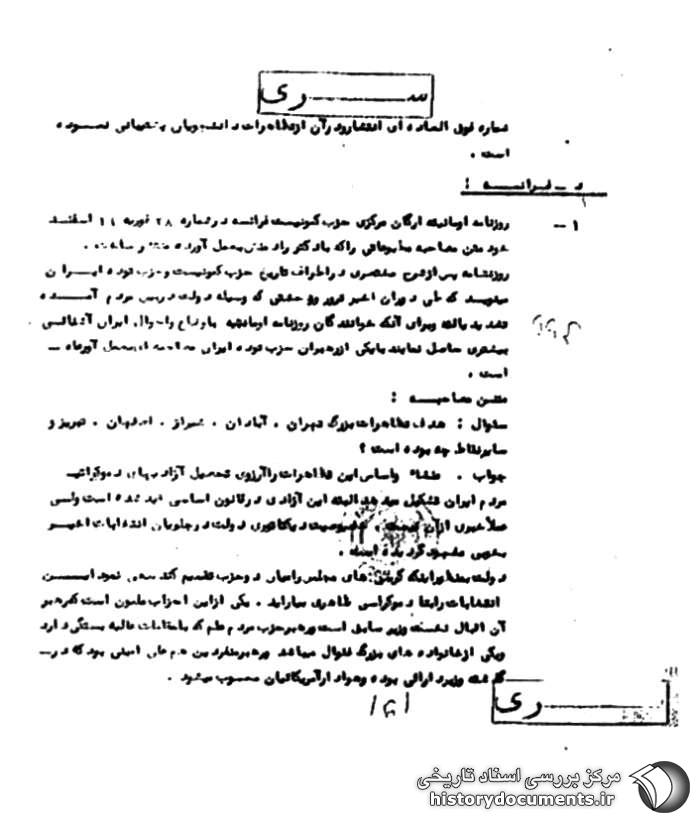 ســــری
شماره فوق العاده ای انتشار و در آن از تظاهرات دانشجویان پشتیبانی نموده
است .
د ــ فرانسه :
۱ ــ روزنامه اومانیته ارگان مرکزی حزب کمونیست فرانسه در شماره ۲۸ فوریه ۱۱ اسفند
خود متن مصاحبه مطبوعاتی را که با دکتر راد منش بعمل آورده منتشر ساخت .
روزنامه پس از شرح مختصری در اطراف تاریخ حزب کمونیست و حزب توده ایران
مینویسد که طی دوران اخیر ترور و وحشتی که وسیله دولت در بین مردم آمده
تشدید یافته و برای آنکه خوانندگان روزنامه اومانیته باوضاع واحوال ایران آشنائی
بیشتری حاصل نمایند با یکی از رهبران حزب توده ایران مصاحبه ای بعمل آورده ــ
است .
متن مصاحبه :
سئوال : هدف تظاهرات بزرگ تهران . آبادان . شیراز . اصفهان . تبریز و
سایر نقاط چه بوده است ؟
جواب . منشاء واساس این تظاهرات را آرزوی تحصیل آزادیهای دموکراتیک
مردم ایران تشکیل میدهد البته این آزادی در قانون اساسی قید شده است ولی
عملا خبری از آن نیست . خصوصیت دیکتاتوری دولت در جلو بیان انتخابات اخیر
بخوبی مشهود گردیده است .
دولت بمنظور اینکه کرسی های مجلس را میان دو حزب تقسیم کند سعی نمود این
انتخابات را بقا دموکراسی ظاهری بیاراید . یکی از این احزاب ملیون است که رهبر
آن اقبال نخست وزیر سابق است و رهبر حزب مردم علم که با مقامات عالیه بستگی دارد
ویکی از خانواده های بزرگ فئودال میباشد و رهبر منفردین هم علی امینی بود که در ــ
گذشته وزیر دارائی بوده و هوادار آمریکائیان محسوب میشود .
۱۶۱
ســــری
مرکز بررسی اسناد تاریخی
historydocuments.ir